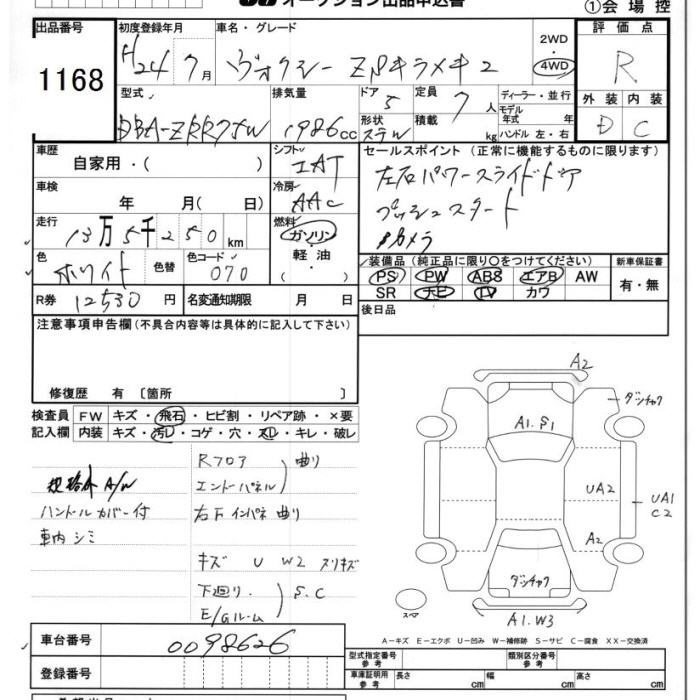 オークション出品申込書
①会場控
出品番号 初度登録年月 車名・グレード 評価点
1168 H24 7月 ヴォクシー ZSキラメキ2 2WD 4WD R
型式 排気量 ドア 定員 ディーラー・並行 外装 内装
DBA-ZRR75W 1986cc 5 7人 モデル年式 年 D C
形状 ステW 積載 kg ハンドル 左・右
車歴 シフト セールスポイント (正常に機能するものに限ります)
自家用・( ) IAT 左右パワースライドドア
車検 冷房
年 月( 日) AAC プッシュスタート
走行 燃料
13万5千250km ガソリン・ Bカメラ
色 色替 色コード 軽油
ホワイト 070 ・( )
装備品(純正品に限り○をつけてください) 新車保証書
PS PW ABS エアB AW 有・無
SR ナビ TV カワ
R券 12530円 名変通知期限 月 日
後日品
注意事項申告欄(不具合内容等は具体的に記入して下さい)
修復歴 有〔箇所 〕
検査員 FW キズ・飛石・ヒビ割・リペア跡・×要
記入欄 内装 キズ・汚レ・コゲ・穴・スレ・キレ・破レ
Rフロア 曲り
A/W エンドパネル
ハンドルカバー付 右下インパネ曲り
車内シミ
キズ U W2 スリキズ
下廻り. S.C
E/Gルーム
A2
ダンチャク
A1.S1
UA2 UA1
C2
A2
ダンチャク
スペア A1.W3
A−キズ E−エクボ U−凹み W−補修跡 S−サビ C−腐食 XX−交換済
車台番号 0098626
型式指定番号 参考 類別区分番号 参考
登録番号 車庫証明用 参考 長さ cm 幅 cm 高さ cm